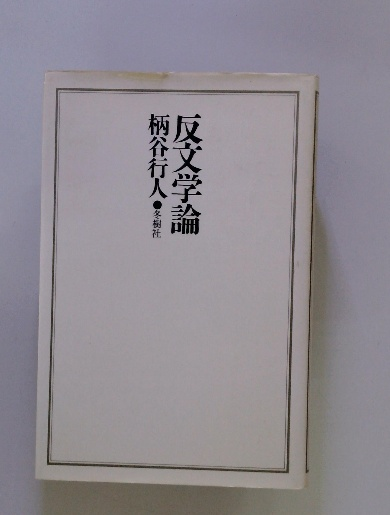 反文学論
柄谷行人●冬樹社